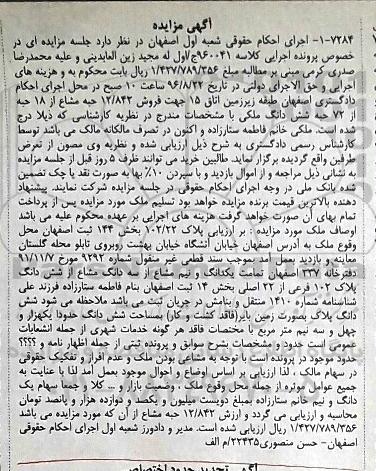 آگهی مزایده
۱-۷۲۸۴- اجرای احکام حقوقی شعبه اول اصفهان در نظر دارد جلسه مزایده ای در
خصوص پرونده اجرایی کلاسه ۹۶۰۰۴۱ج/اول له مجید زین العابدینی و علیه محمدرضا
صدری کرمی مبنی بر مطالبه مبلغ ۱/۴۳۷/۷۸۹/۳۵۶ ریال بابت محکوم به و هزینه های
اجرایی و حق الاجرای دولتی در تاریخ ۹۶/۸/۲۲ ساعت ۱۰ صبح در محل اجرای احکام
دادگستری اصفهان طبقه زیرزمین اتاق ۱۵ جهت فروش ۱۲/۸۴۲ حبه مشاع از ۱۸ حبه
از ۷۲ حبه شش دانگ ملکی با مشخصات مندرج در نظریه کارشناسی که ذیلا درج
شده است. ملکی خانم فاطمه ستارزاده و اکنون در تصرف مالکانه مالک می باشد توسط
کارشناس رسمی دادگستری به شرح ذیل ارزیابی شده و نظریه وی مصون از تعرض
طرفین واقع گردیده برگزار نماید. طالبین خرید می توانند ظرف ۵ روز قبل از جلسه مزایده
به نشانی ذیل مراجعه و از اموال بازدید و با سپردن ۱۰٪ بها به صورت نقد یا چک تضمین
شده بانک ملی در وجه اجرای احکام حقوقی در جلسه مزایده شرکت نمایند. پیشنهاد
دهنده بالاترین قیمت برنده مزایده خواهد بود تسلیم ملک مورد مزایده پس از پرداخت
تمام بهای آن صورت خواهد گرفت هزینه های اجرایی بر عهده محکوم علیه می باشد
اوصاف ملک مورد مزایده : بر ارزیابی پلاک ۱۰۲/۲۲ بخش ۱۴۴ ثبت اصفهان محل
وقوع ملک به آدرس اصفهان خیابان آتشگاه خیابان بهشت روبروی تابلو محله گلستان
معاینه و بازدید بعمل آمد بموجب سند قطعی غیر منقول شماره ۹۲۹۲ مورخ ۹۱/۱۱/۷
دفترخانه ۳۳۷ اصفهان تمامت یکدانگ و نیم مشاع از سه دانگ مشاع از شش دانگ
پلاک ۱۰۲ فرعی از ۲۲ اصلی بخش ۱۴ ثبت اصفهان بنام فاطمه ستارزاده فرزند علی
شناسنامه شماره ۱۴۱۰ منتقل و بنامش در جریان ثبت می باشد ملاحظه می شود شش
دانگ پلاک بصورت زمین بایر(فاقد کشت و کار) مساحت شش دانگ حدودا یکهزار و
چهل و سه نیم متر مربع با مختصات فاقد هر گونه خدمات شهری از جمله انشعابات
عمومی است حدود و مشخصات بشرح سوابق و پرونده ثبتی از جمله اظهار نامه و ؟؟؟؟
حدود موجود در پرونده است با توجه به مشاعی بودن ملک و عدم افراز و تفکیک حقوقی
در سهام مالک ، لذا ارزیابی بر اساس اوضاع و احوال موجود بعمل آمد لذا با عنایت به
جمیع عوامل موثره از جمله محل وقوع ملک ، وضعیت بازار و ... کلا و جمعا سهام یک
دانگ و نیم خانم ستارزاده بمبلغ دویست میلیون و یکصد و دوازده هزار و پانصد تومان
محاسبه و ارزیابی می گردد و ارزش ۱۲/۸۴۲ حبه مشاع از آن که مورد مزایده می باشد
۱/۴۳۷/۷۸۹/۳۵۶ ریال ارزیابی شده است. مدیر و دادورز شعبه اول اجرای احکام حقوقی
اصفهان- حسن منصوری۲۲۴۳۵/م الف
آگهی تحدید حدود اختصاصی